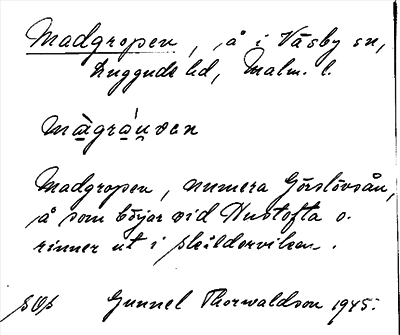 Madgropen, å i Väsby sn,
Luggude hd, Malm. l.
màgráu̯ven
Madgropen, numera Görslövsån,
å som börjar vid Hustofta o.
rinner ut i skälderviken.
Gunnel Thorwaldson 1945.